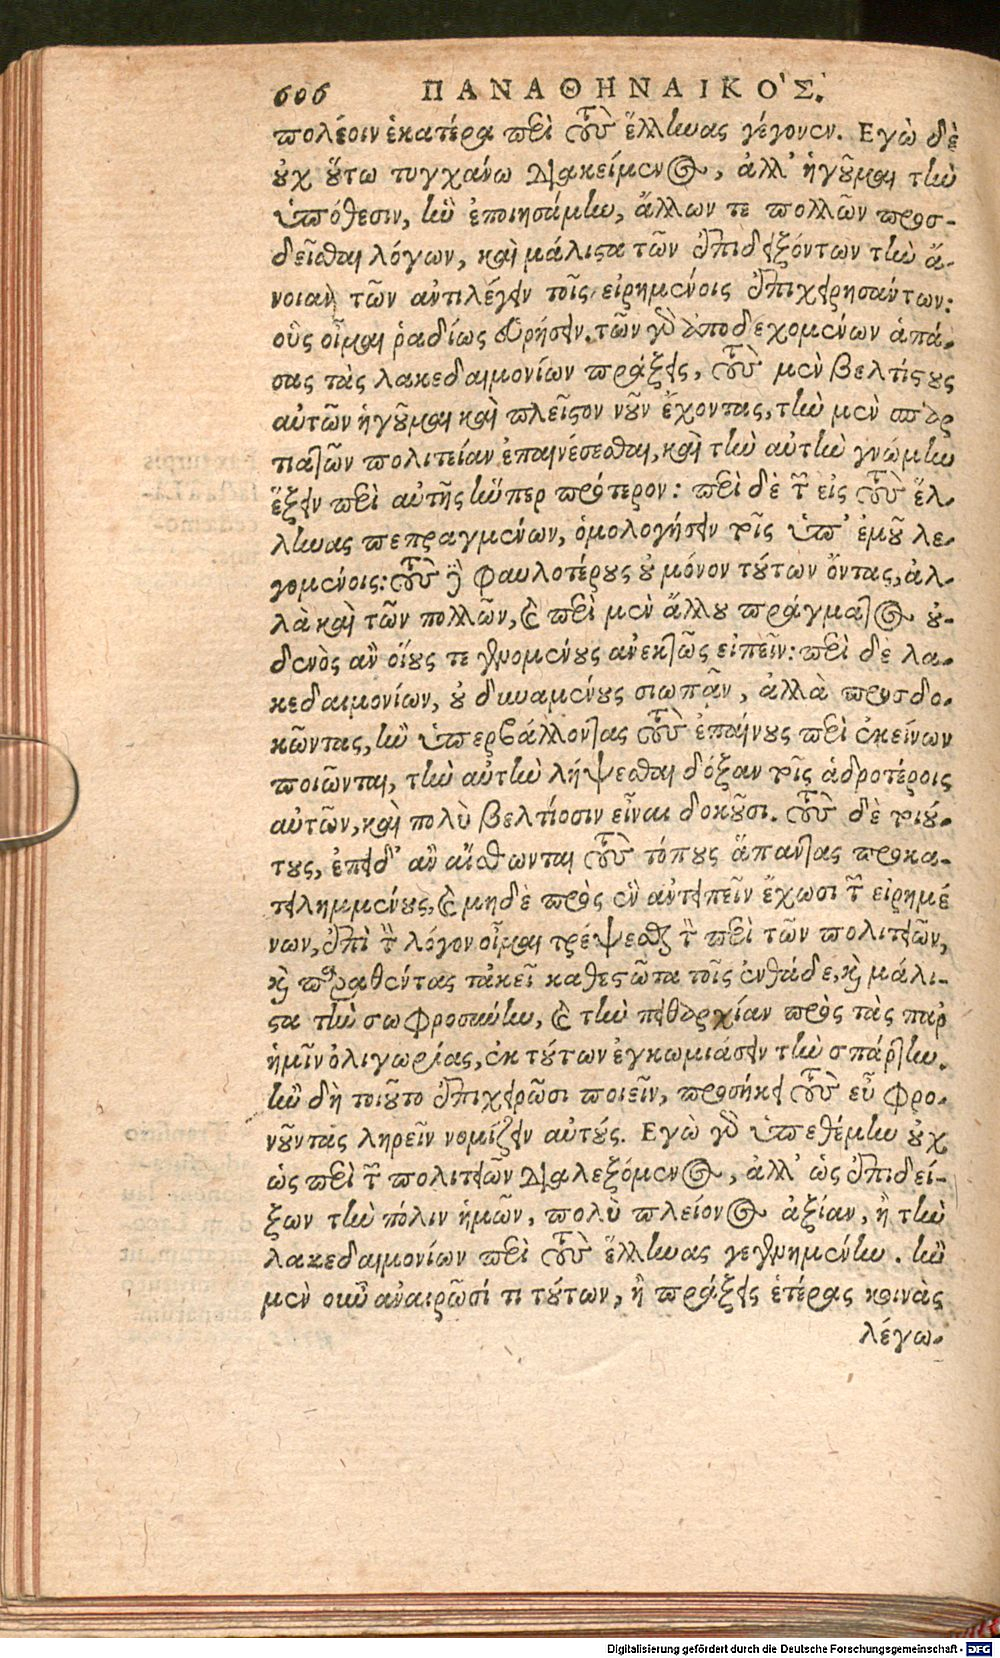 606 ΠΑΝΑΘΗΝΑΙΚΟ'Σ.
πολέοιν ἑκατέρα περὶ τοὺς ἕλληνας γέγονεν. Εγὼ δὲ
οὐχ οὕτω τυγχάνω διακείμενος, ἀλλ' ἡγοῦμαι τὴν
ὑπόθεσιν, ἣν ἐποιησάμην, ἄλλων τε πολλῶν προσ-
δεῖσθαι λόγων, καὶ μάλιστα τῶν ἐπιδειξόντων τὴν ἄ-
νοιαν τῶν ἀντιλέγειν τοῖς εἰρημένοις ἐπιχειρησάντων:
οὓς οἶμαι ῥαδίως εὑρήσειν. τῶν γὰρ ἀποδεχομένων ἁπά-
σας τὰς λακεδαιμονίων πράξεις, τοὺς μὲν βελτίστους
αὐτῶν ἡγοῦμαι καὶ πλεῖστον νοῦν ἔχοντας, τὴν μὲν σπαρ
τιατῶν πολιτείαν ἐπαινέσεσθαι, καὶ τὴν αὐτὴν γνώμην
ἕξειν περὶ αὐτῆς ἥνπερ πρότερον: περὶ δὲ τῶν εἰς τοὺς ἕλ-
ληνας πεπραγμένων, ὁμολογήσειν τοῖς ὑπ' ἐμοῦ λε-
γομένοις: τοὺς δὲ φαυλοτέρους οὐ μόνον τούτων ὄντας, ἀλ-
λὰ καὶ τῶν πολλῶν, καὶ περὶ μὲν ἄλλου πράγματος οὐ-
δενὸς ἂν οἵους τε γενομένους ἀνεκτῶς εἰπεῖν: περὶ δὲ λα-
κεδαιμονίων, οὐ δυναμένους σιωπᾶν, ἀλλὰ προσδο-
κῶντας, ἢν ὑπερβάλλοντας τοὺς ἐπαίνους περὶ ἐκείνων
ποιῶνται, τὴν αὐτὴν λήψεσθαι δόξαν τοῖς ἁδροτέροις
αὐτῶν, καὶ πολὺ βελτίοσιν εἶναι δοκοῦσι. τοὺς δὲ τοιού-
τους, ἐπειδ' ἂν αἴσθωνται τοὺς τόπους ἅπαντας προκα-
τειλημμένους, καὶ μηδὲ πρὸς ἓν ἀντειπεῖν ἔχωσι τῶν εἰρημέ
νων, ἐπὶ τὸν λόγον οἶμαι τρέψεσθαι τὸν περὶ τῶν πολιτειῶν,
καὶ παραθέντας τἀκεῖ καθεστῶτα τοῖς ἐνθάδε, καὶ μάλι-
στα τὴν σωφροσύνην, καὶ τὴν πειθαρχίαν πρὸς τὰς παρ'
ἡμῖν ὀλιγωρίας, ἐκ τούτων ἐγκωμιάσειν τὴν σπάρτην.
ἢν δὴ τοιοῦτο ἐπιχειρῶσι ποιεῖν, προσήκει τοὺς εὖ φρο-
νοῦντας ληρεῖν νομίζειν αὐτούς. Εγὼ γὰρ ὑπεθέμην οὐχ
ὡς περὶ τῶν πολιτειῶν διαλεξόμενος, ἀλλ' ὡς ἐπιδεί-
ξων τὴν πόλιν ἡμῶν, πολὺ πλείονος ἀξίαν, ἢ τὴν
λακεδαιμονίων περὶ τοὺς ἕλληνας γεγενημένην. ἢν
μὲν οὖν ἀναιρῶσί τι τούτων, ἢ πράξεις ἑτέρας κοινὰς
λέγω-
Digitalisierung gefördert durch die Deutsche Forschungsgemeinschaft - DFG